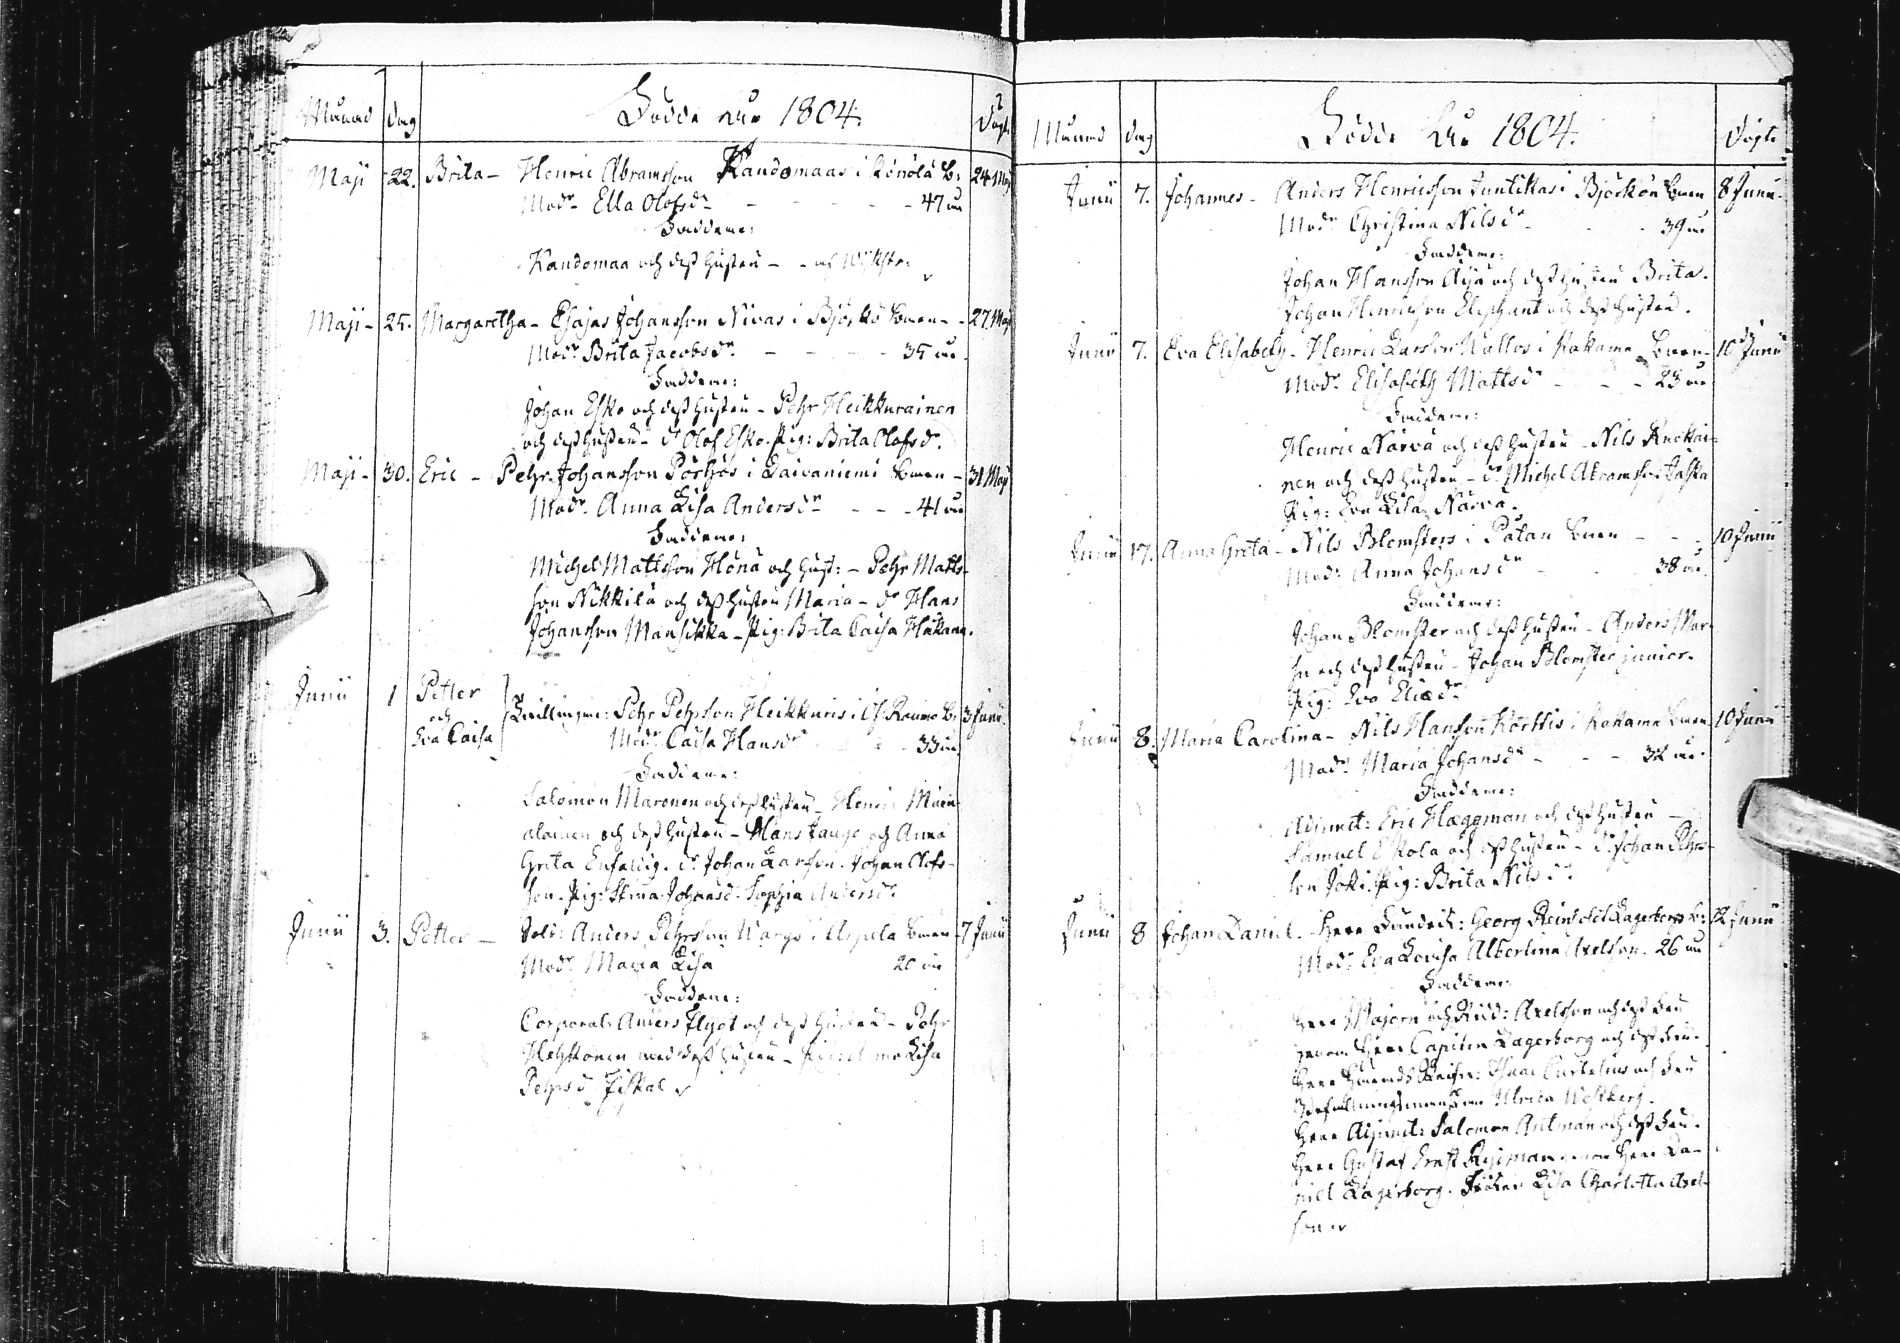 Månad dag Födde åhr 1804. Döpt.
Maji 22. Brita - Henric Abramsson Kandomaas i Könölä B: 24 Maj
Modr Ella Olofsdr - - - - - 47 år
Faddrar:
Kandomaa och dess hustru - -
Maji - 25. Margaretha - Esajas Johansson Nivas i Björkö Bαen - 27 Maj
Modr Brita Jacobsdr - - - - 35 år
Faddrar:
Johan Esko och dess hustru - Pehr Heikkurainen
och dess hustru - dr Olof Esko. Pig: Brita Olofsd.
Maji - 30. Eric - Pehr Johansson Pörhös i Laivaniemi - 31 Maj
Modr Anna Lisa Andersdr - - - 41 år
Faddrar:
Michel Mattsson Honä och hust: - Pehr Matts-
son Nikkilä och dess hustru Maria - dr Hans
Johansson Mansikka - Pig: Brita Caisa Hükana.
Junii 1 Petter
och
Eva Caisa
Twillingar: Pehr Pehrsson Heikkuris i Raumo B: 3 Junii
Modr Caisa Hansdr - - 33 år
Faddrar:
Salomon Maronen och dess hustru - Henric
och dess hustru - Hans Jauge och Anna
Greta Enfallig. dr Johan Larsson. Johan Olofs-
son. Pig: Stina Johansd. Sophia Andersdr
Junii 3. Petter - Sold: Anders Pehrsson Wargs i Arpela - 7 Junii
Modr Maria Lisa 20 år
Faddrar:
Corporal: Anders Flygt och dess hustru - Pehr
med dess hustru - Lisa
Pehrsd Fiskal
Månad dag Födde åhr 1804. Döpte
Junii 7. Johannes - Anders Henricsson Juntikkas i Björkön 8 Junii.
Modr Christina Nilsdr - - 39 år
Faddrar:
Johan Hansson Äijä och dess hustru Brita.
Johan Henricsson Elephant och dess hustru.
Junii 7. Eva Elisabeth - Henric Larsson Kallos i Kakama - 10 Junii
Modr Elisabeth Mattsdr - - - 23 år
Faddrar:
Henric Närvä och dess hustru - Nils Knokkai-
nen och dess hustru - dr Michel Abramsson Jaska
Pig: Eva Lisa Närvä.
Junii 7. Anna Greta - Nils Blomsters i Palan - - - 10 Junii
Modr Anna Johansdr - - 38 år
Faddrar:
Johan Blomster och dess hustru - Anders Mar-
och dess hustru - Johan Blomster junior.
Pig: Eva Eliædr
Junii 8. Maria Carolina - Nils Hansson Körttis i Kakama 10 Junii
Modr Maria Johansdr - - - 32 år
Faddrar:
Adjunct: Eric Hæggman och dess hustru -
Samuel Eskola och dess hustru - dr Johan Pehrs-
son Joki. Pig: Brita Nilsdr
Junii 8 Johan Daniel - Herr Georg Reinhold Lagerborgs 12 Junii
Modr Eva Lovisa Albertina Axelson. 26 år
Faddrar:
Herr Majoren och Ridd: Axelsson och dess Fru
genom Herr Capiten Lagerborg och dess Fru.
Herr Isaac Castelius och Fru
Ulrica Westberg.
Herr Adjunct: Salomon Antman och dess Fru.
Herr Gustaf Ernst genom Herr Da-
niel Lagerborg. Fröken Lisa Charlotta Axel-
son